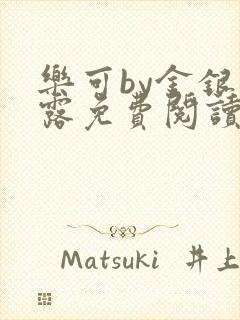 樂可by金銀
露免費閱讀
Matsuki 井上